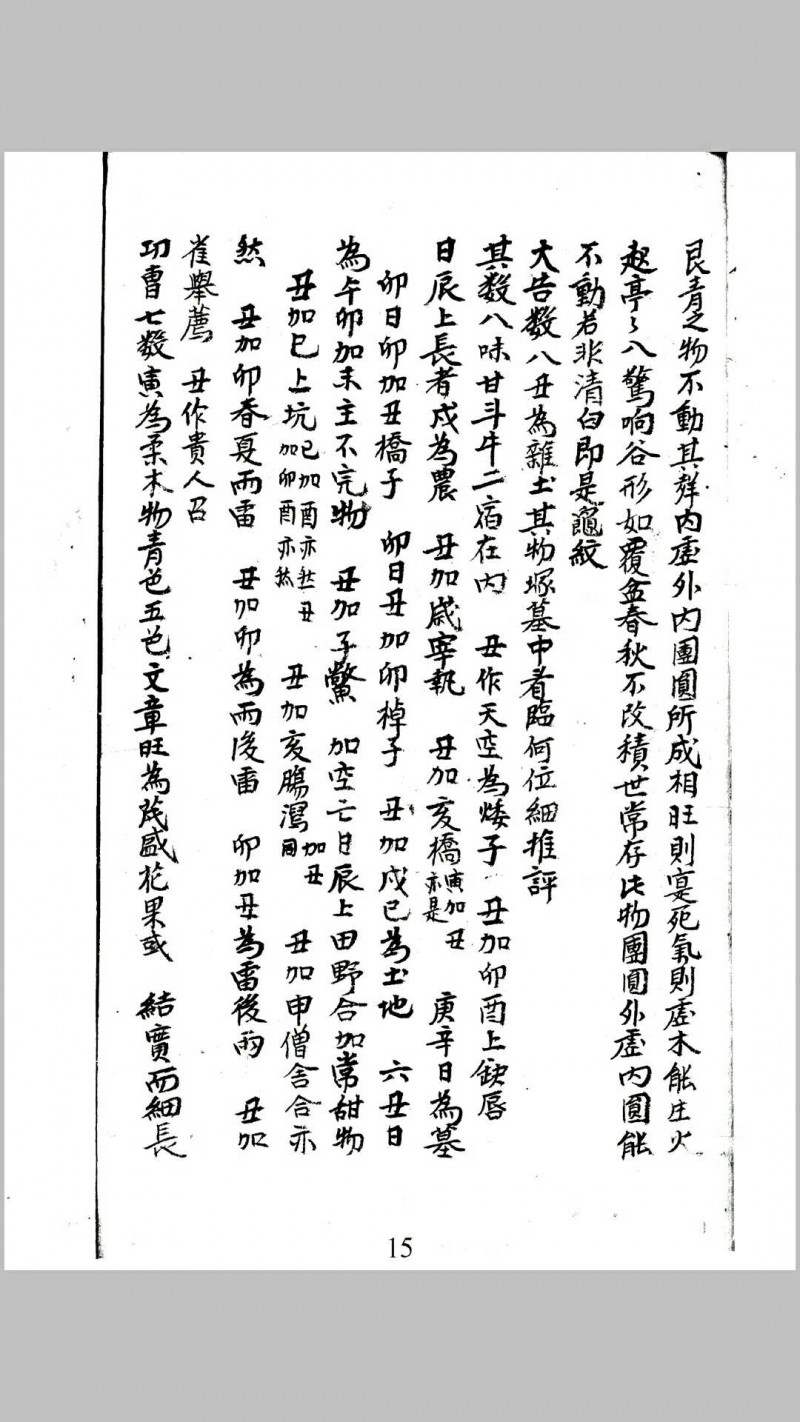 艮青之物不動其群內虛外內團圓所成相旺則寔死氣則虛木能庄火
赵亭〻八驚响谷形如覆盆春秋不改積世常存此物團圓外虛內圓能
不動若非清白即是龜紋
大吉数八丑為雜土其物塚墓中看臨何位細推評
其数八味甘斗牛二宿在內　丑作天空為矮子　丑加卯酉上缺唇
日辰上長者戌為農　丑加戌宰執　丑加亥橋寅加丑亦是　庚辛日為墓
卯日卯加丑橋子　卯日丑加卯棹子　丑加戌已為土地　六丑日
為午卯加未主不完物　丑加子鱉　加空亡日辰上田野合加常甜物
丑加巳上坑已加酉亦然丑加卯酉亦然　丑加亥腸瀉加丑同　丑加申僧舍合亦
然　丑加卯春夏雨雷　丑加卯為雨後雷　卯加丑為雷後雨　丑加
雀舉薦　丑作貴人召
功曹七数寅為柔木物青色五色文章旺為茂盛花果或　結實而細長
15